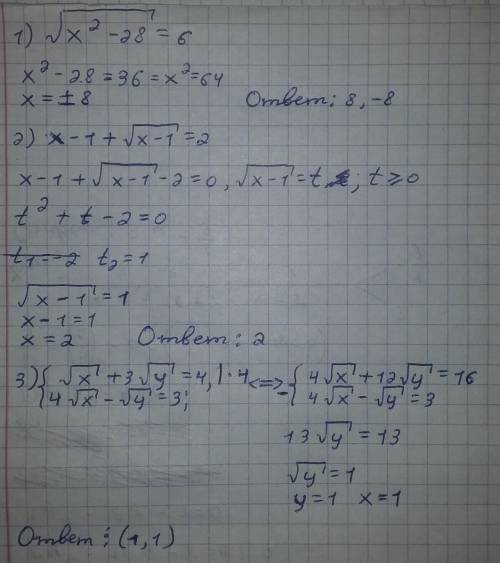 1) √(x² - 28) = 6
x² - 28 = 36 = x² = 64
x = ±8
Ответ: 8, -8
2) x - 1 + √(x-1) = 2
x - 1 + √(x-1) - 2 = 0, √(x-1) = t; t ≥ 0
t² + t - 2 = 0
t₁ = -2 t₂ = 1
√(x-1) = 1
x - 1 = 1
x = 2 Ответ: 2
3) { √x + 3√y = 4, | · 4 <=> { 4√x + 12√y = 16
4√x - √y = 3; - 4√x - √y = 3
13√y = 13
√y = 1
y = 1 x = 1
Ответ: (1, 1)